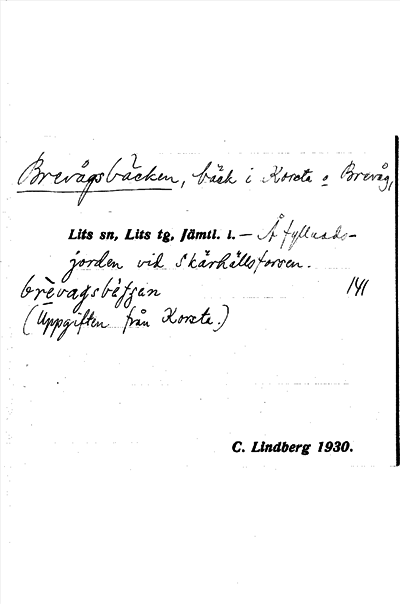 Brevågsbäcken, bäck i Korsta o Brevåg,
Lits sn, Lits tg, Jämtl. l. – Å fyllnads-
jorden vid Skärhällsforsen.
brèvagsbḗkʃan 141
(Uppgiften från Korsta.)
C. Lindberg 1930.